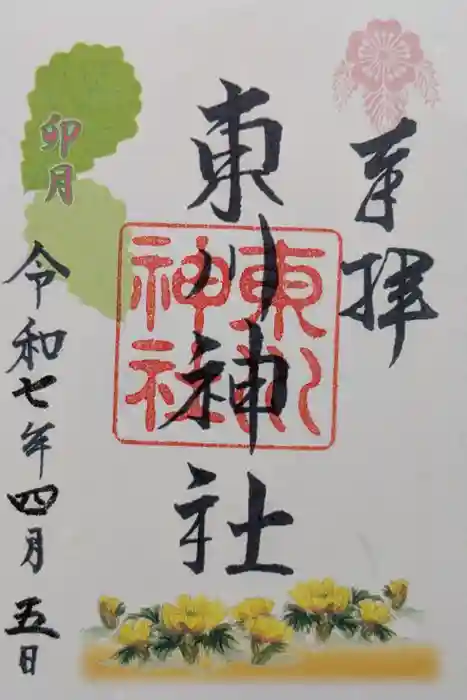 奉拝
東川神社
東川神社
卯月
令和七年四月五日